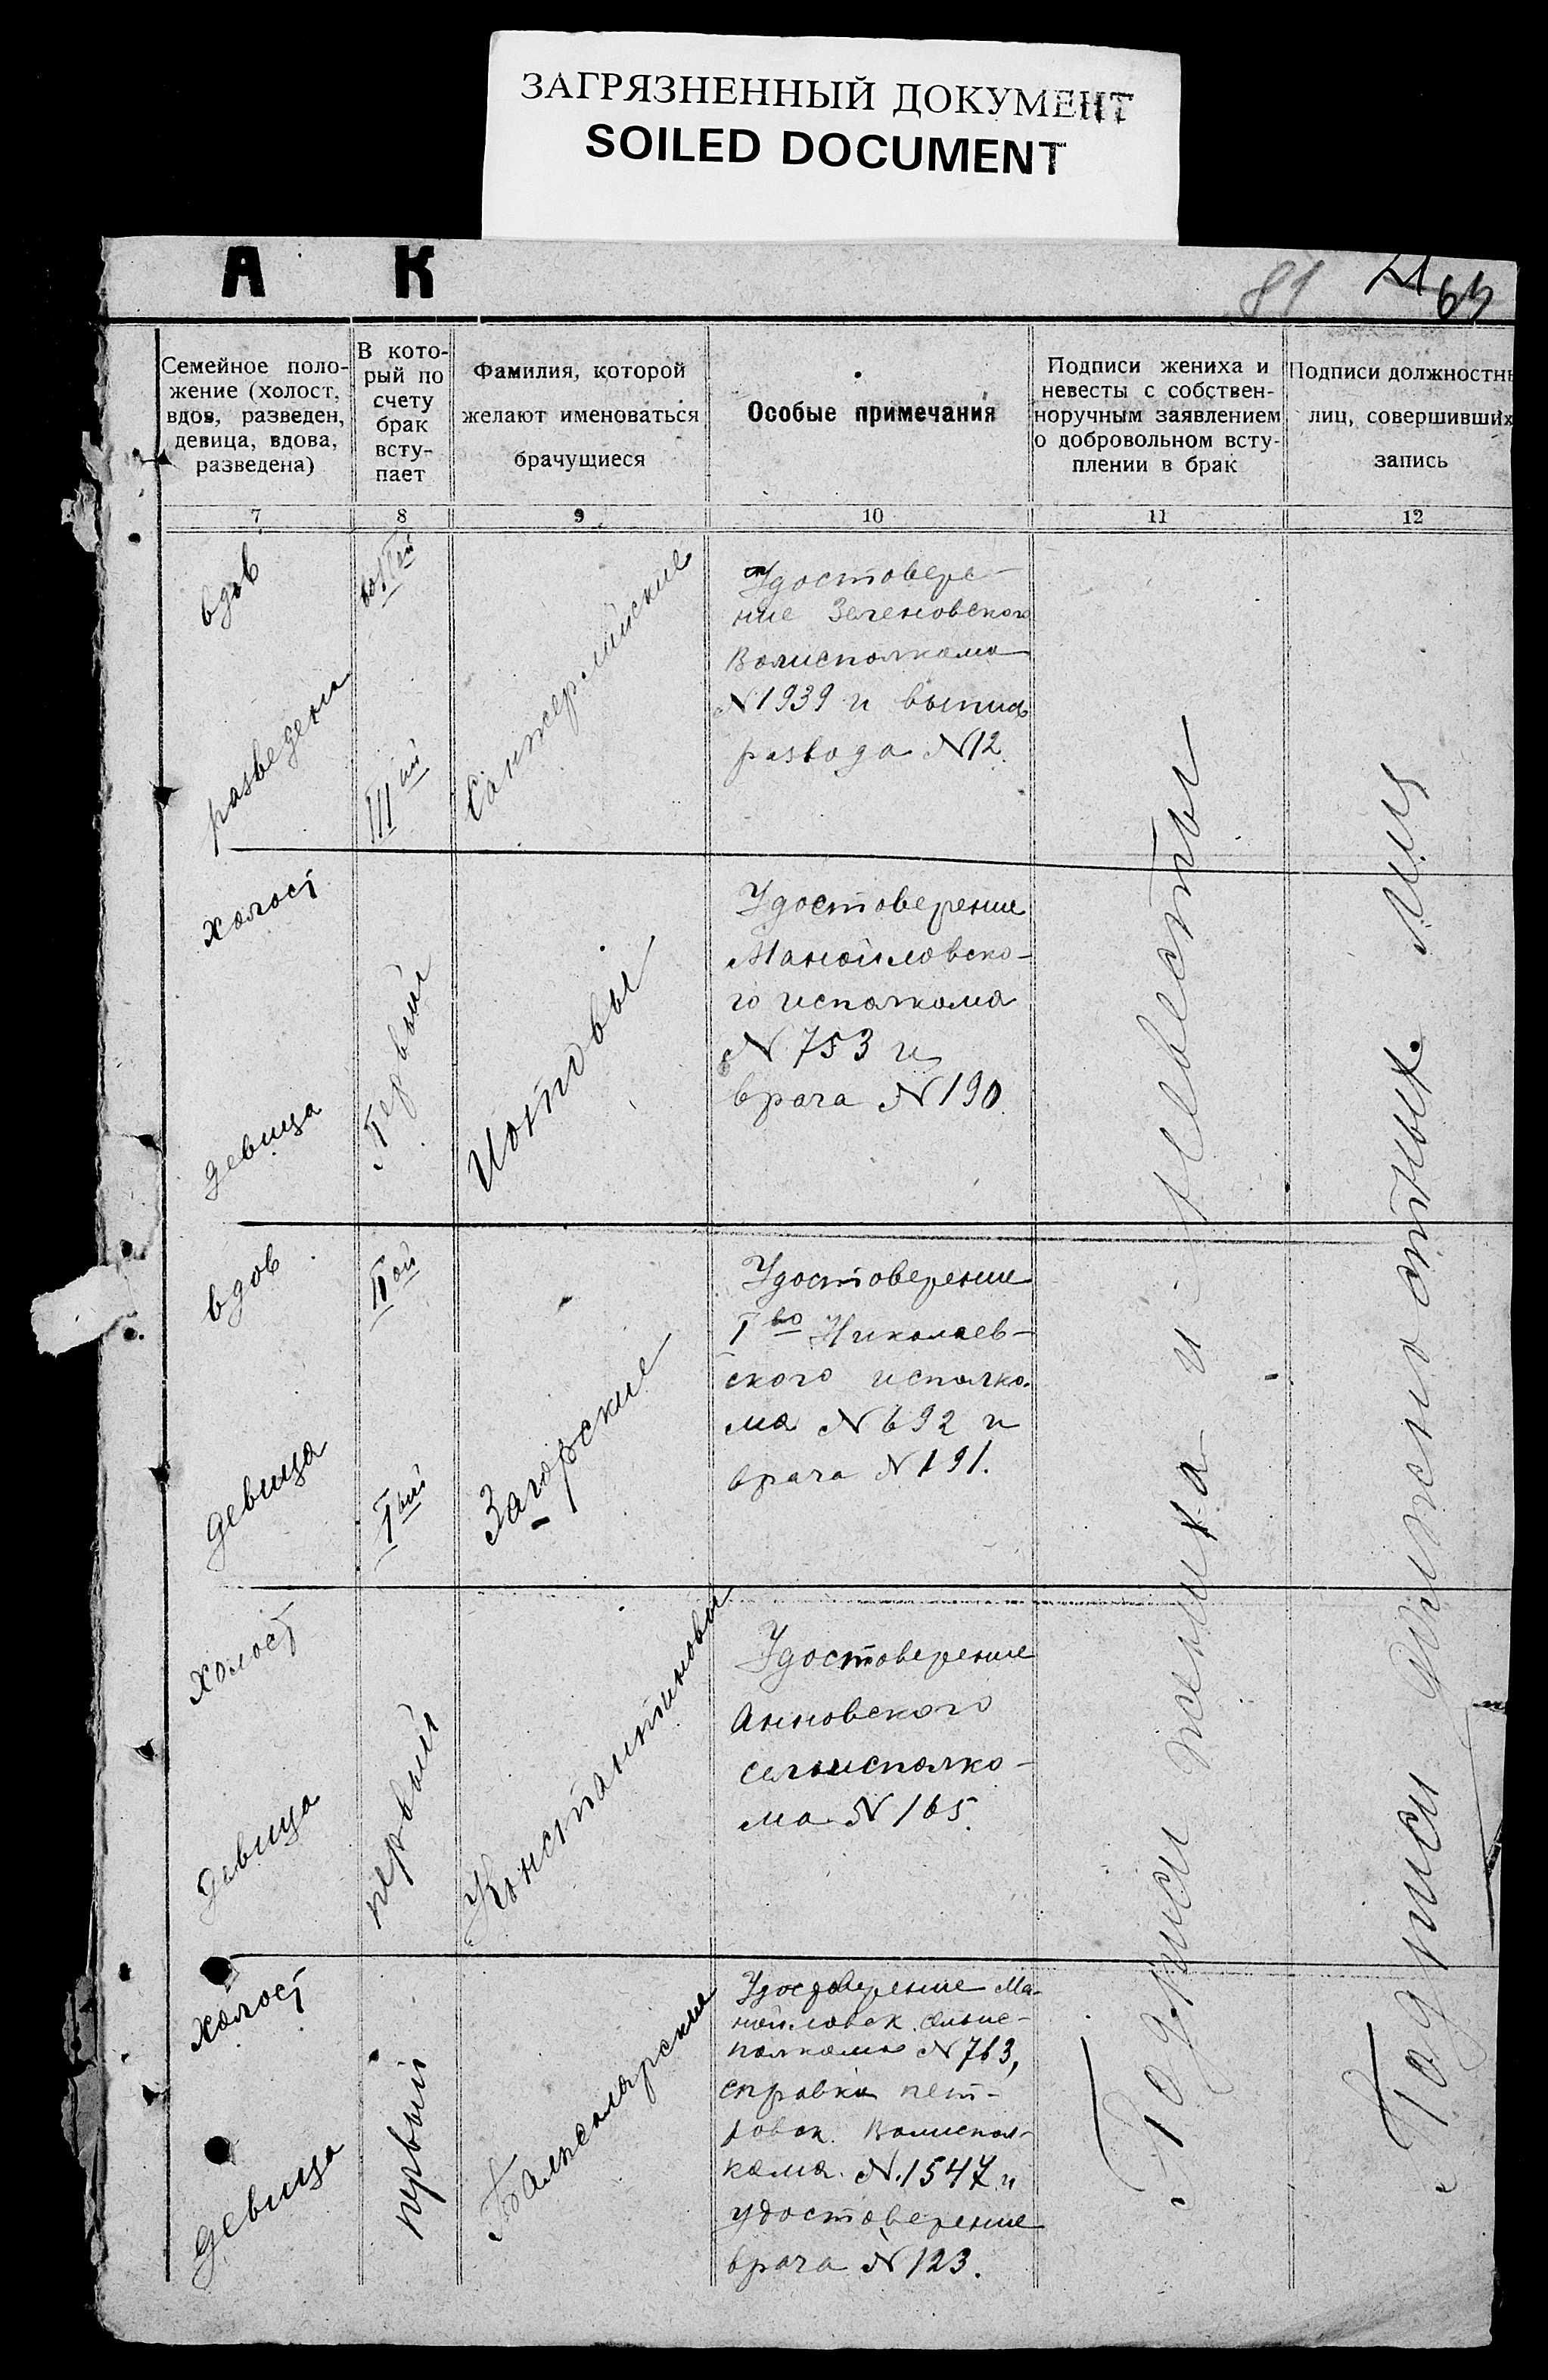 ЗАГРЯЗНЕННЫЙ ДОКУМЕНТ
SOILED DOCUMENT
А К
81
Семейное поло-
жение (холост,
вдов, разведен,
девица, вдова,
разведена)
В кото-
рый по
счету
брак
всту-
пает
Фамилия, которой
желают именоваться
брачущиеся
Особые примечания
Подписи жениха и
невесты с собствен-
норучным заявлением
о добровольном всту-
плении в брак
Подписи должностн
лиц, совершивших
запись
7 8 9 10 11 12
вдов
разведена
III ий
Удостовере-
ние
Волисполкома
N 1939 и выпись
развода N 12.
холост
девица
Первый
Удостоверение
Манойловско-
го исполкома
N 753 и
врача N 190
вдов
II ой
девица
I ый
Загорские
Удостоверение
I во Николаев-
ского исполко-
ма N 692 и
врача N 191.
холост
девица
первый
Константиновы
Удостоверение
Анновского
сельисполко-
ма N 165.
холост
девица
первый
Удостоверение Ма-
нойловск. сельис-
полкома N 763,
справка пет-
ровск. Волиспол-
кома N. 1547 и
удостоверение
врача N 123.
Подписи жениха и невесты
Подписи должностных лиц